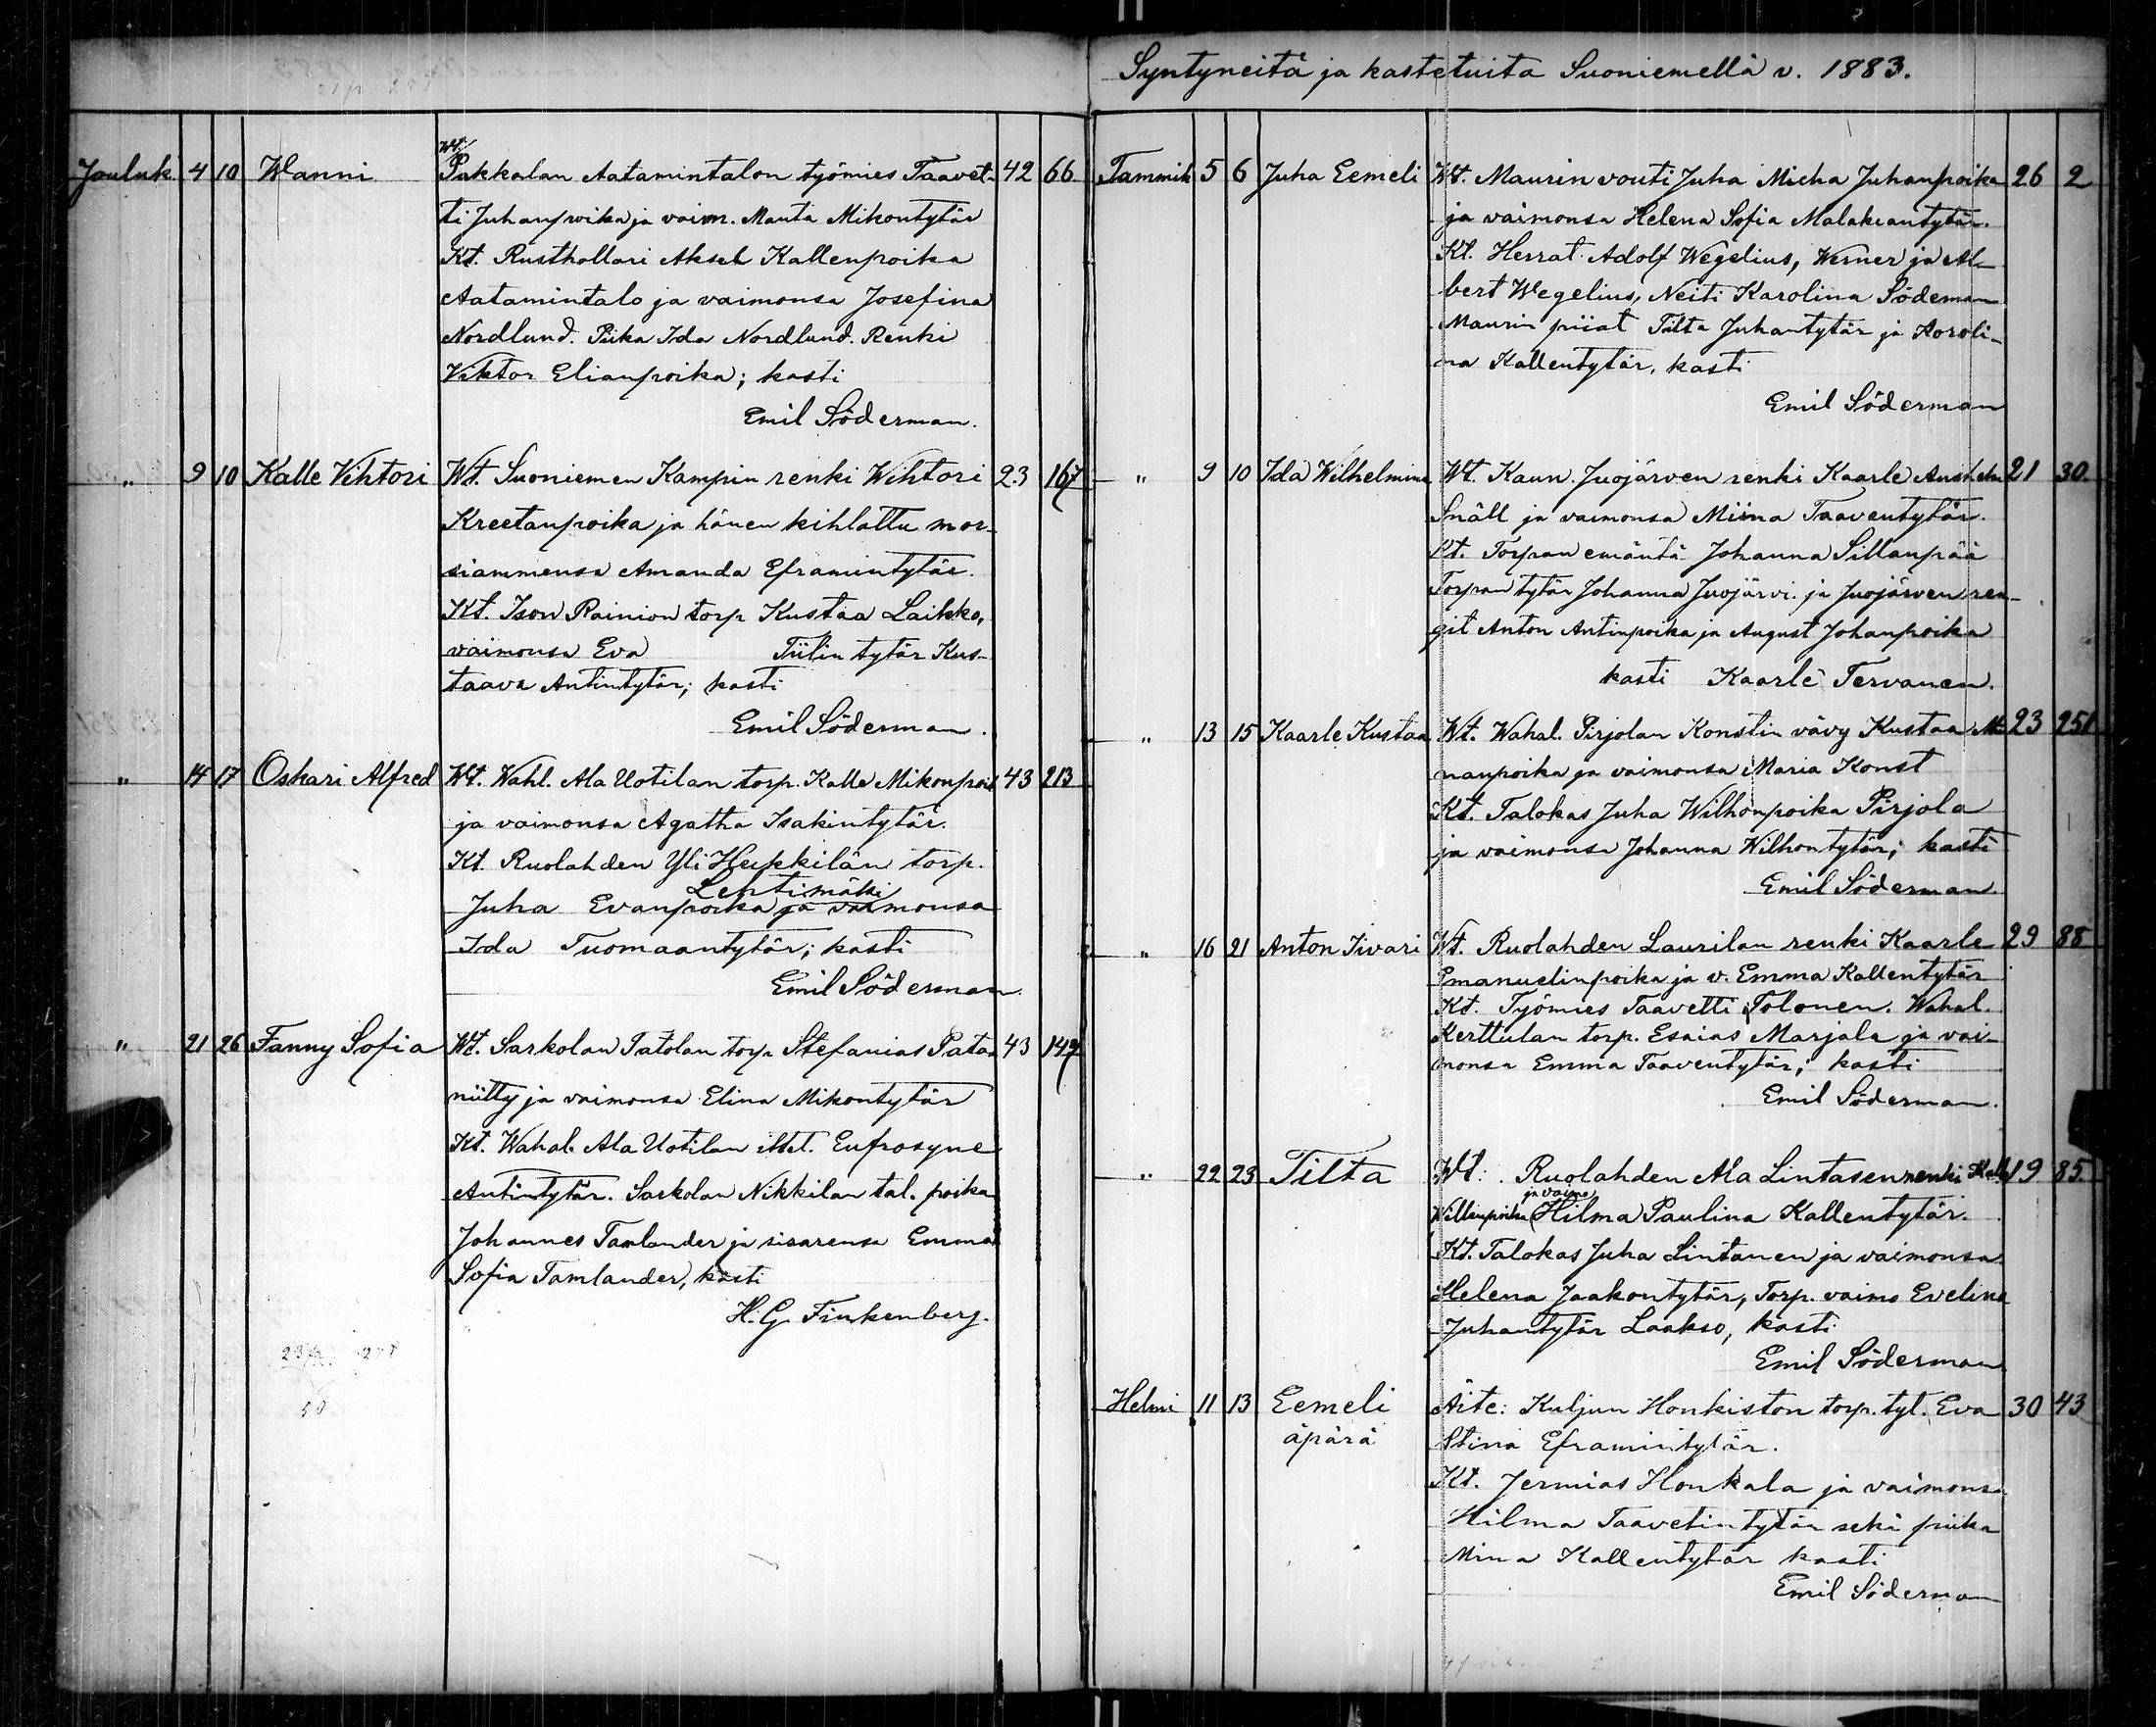 Jouluk. 4 10 Wanni Wt. Pakkalan Aatamintalon työmies Taavet- 42 66
ti Juhanpoika ja vaim. Manta Mikontytär
Kt. Rusthollari Aksel Kallenpoika
Aatamintalo ja vaimonsa Josefina
Nordlund. Piika Ida Nordlund. Renki
Viktor Elianpoika; kasti
Emil Söderman.
" 9 10 Kalle Vihtori Wt. Suoniemen Kampin renki Wihtori 23 167
Kreetanpoika ja hänen kihlattu mor-
siammensa Amanda Eframintytär.
Kt. Ison Rainion torp Kustaa Laikko,
vaimonsa Eva Tiilin tytär Kus-
taava Antintytär; kasti
Emil Söderman.
" 14 17 Oskari Alfred Wt. Wahl. Ala Uotilan torp. Kalle Mikonpoik 43 213
ja vaimonsa Agatha Isakintytär.
Kt. Ruolahden Yli Heikkilän torp.
Lehtimäki
Juha Evanpoika ja vaimonsa
Ida Tuomaantytär; kasti
Emil Söderman.
" 21 26 Fanny Sofia Wt. Sarkolan Tatolan torp. Stefanias Pata- 43 149
niitty ja vaimonsa Elina Mikontytär
Kt. Wahal. Ala Uotilan ittel. Eufrosyne
Antintytär. Sarkolan Nikkilan tal. poika
Johannes Tamlander ja sisarensa Emma
Sofia Tamlander, kasti
H. G. Finkenberg.
50
Syntyneitä ja kastetuita Suoniemellä v. 1883.
Tammik 5 6 Juha Eemeli Wt. Maurin vouti Juha Micha Juhanpoika 26 2
ja vaimonsa Helena Sofia Malakiantytär.
Kt. Herrat Adolf Wegelius, Werner ja Al-
bert Wegelius, Neiti Karolina Södeman
Maurin piiat Tilta Juhantytär ja Koroli-
na Kallentytär, kasti
Emil Söderman
" 9 10 Ida Wilhelmina Wt. Kaun. Juojärven renki Kaarle Anshelm 21 30.
Snäll ja vaimonsa Miina Taaventytär.
Kt. Torpan emäntä Johanna Sillanpää
Torpan tytär Johanna Juojärvi ja Juojärven ren-
git Anton Antinpoika ja August Johanpoika
kasti Kaarle Tervanen.
" 13 15 Kaarle Kustaa Wt. Wahal. Pirjolan Konstin vävy Kustaa 23 251
nanpoika ja vaimonsa Maria Konst
Kt. Talokas Juha Wilhonpoika Pirjola
ja vaimonsa Johanna Wilhontytär; kasti
Emil Söderman.
" 16 21 Anton Iivari Wt. Ruolahden Laurilan renki Kaarle 29 88
Emanuelinpoika ja v. Emma Kallentytär
Kt. Työmies Taavetti Tolonen. Wahal.
Kerttulan torp. Esaias Marjala ja vai-
monsa Emma Taaventytär; kasti
Emil Söderman.
" 22 23 Tilta Wt: Ruolahden Ala Lintasen renki Kalle 19 85.
ja vaimo
Willenpoika Hilma Paulina Kallentytär.
Kt. Talokas Juha Lintanen ja vaimonsa
Helena Jaakontytär, Torp. vaimo Evelina
Juhantytär Laakso, kasti
Emil Söderman
Helmi 11 13 Eemeli Äite: Kuljun Honkiston torp. tyt. Eva 30 43
äpärä Stina Eframintytär.
Kt. Jermias Honkala ja vaimonsa
Hilma Taavetintytär sekä piika
Mina Kallentytär kasti
Emil Söderman